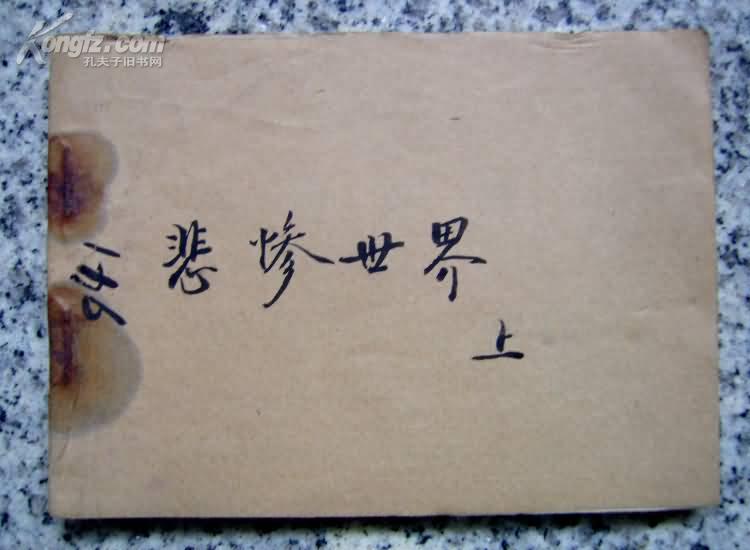 Kongfz.com
孔夫子旧书网
941
悲惨世界
上